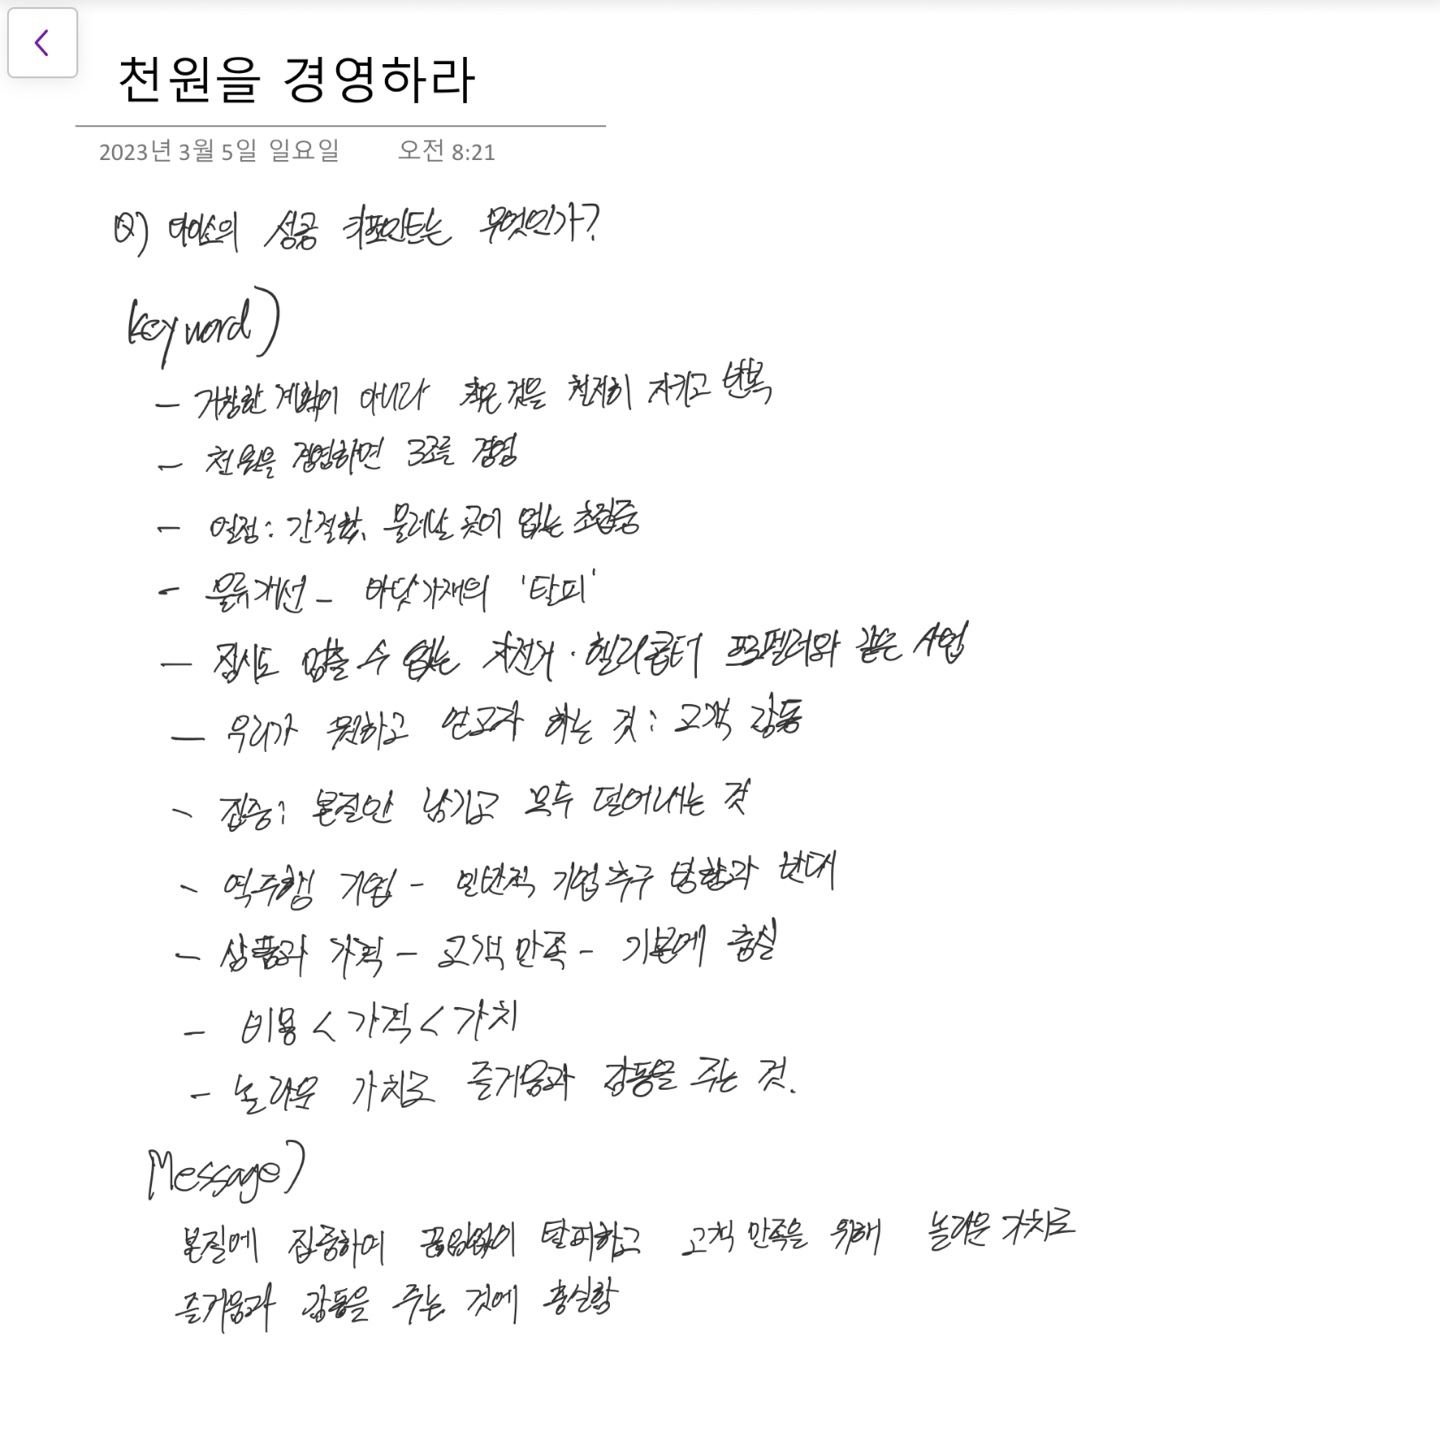 천원을 경영하라
2023년 3월 5일 일요일 오전 8:21
Q) 다이소의 성공 키포인트는 무엇인가?
Keyword)
- 거창한 계획이 아니라 작은 것을 철저히 지키고 반복
- 천원을 경영하면 3조를 경영
- 열정: 간절함, 물러날 곳이 없는 초집중
- 물류개선 - 바닷가재의 '탈피'
- 잠시도 멈출 수 없는 자전거·헬리콥터 프로펠러와 같은 사업
- 우리가 원하고 얻고자 하는 것: 고객 감동
- 집중: 본질만 남기고 모두 덜어내는 것
- 역주행 기업 - 일반적 기업추구 방향과 반대
- 상품과 가격 - 고객 만족 - 기본에 충실
- 비용 < 가격 < 가치
- 놀라운 가치로 즐거움과 감동을 주는 것.
Message)
본질에 집중하며 끊임없이 탈피하고 고객 만족을 위해 놀라운 가치로
즐거움과 감동을 주는 것에 충실함